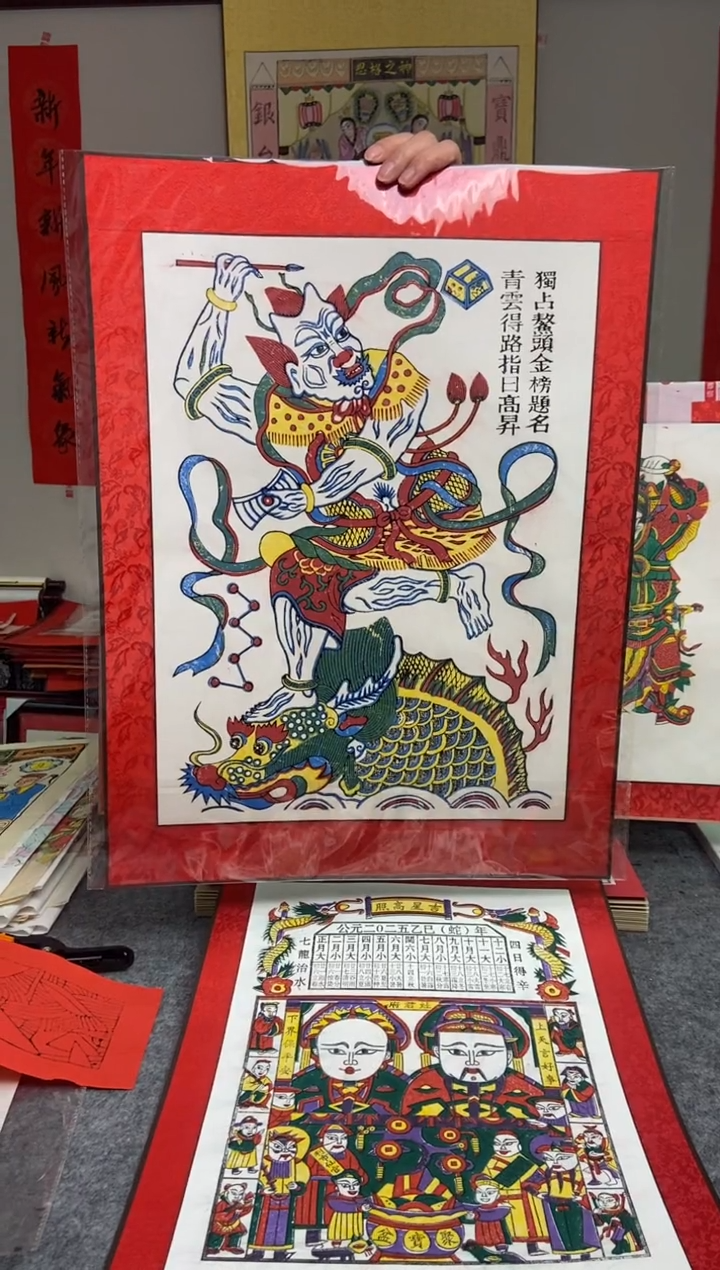 神之格思
寶鼎
銀
新年新风新氣象
獨占鰲頭金榜題名
青雲得路指日髙昇
吉星高照
公元二0二五乙巳(蛇)年
四日得辛
七龍治水
正月大
二月小
三月大
四月小
五月小
六月大
閏六小
七月大
八月小
十月大
十一大
十二小
上天言好事
下界保平安
聚寶盆